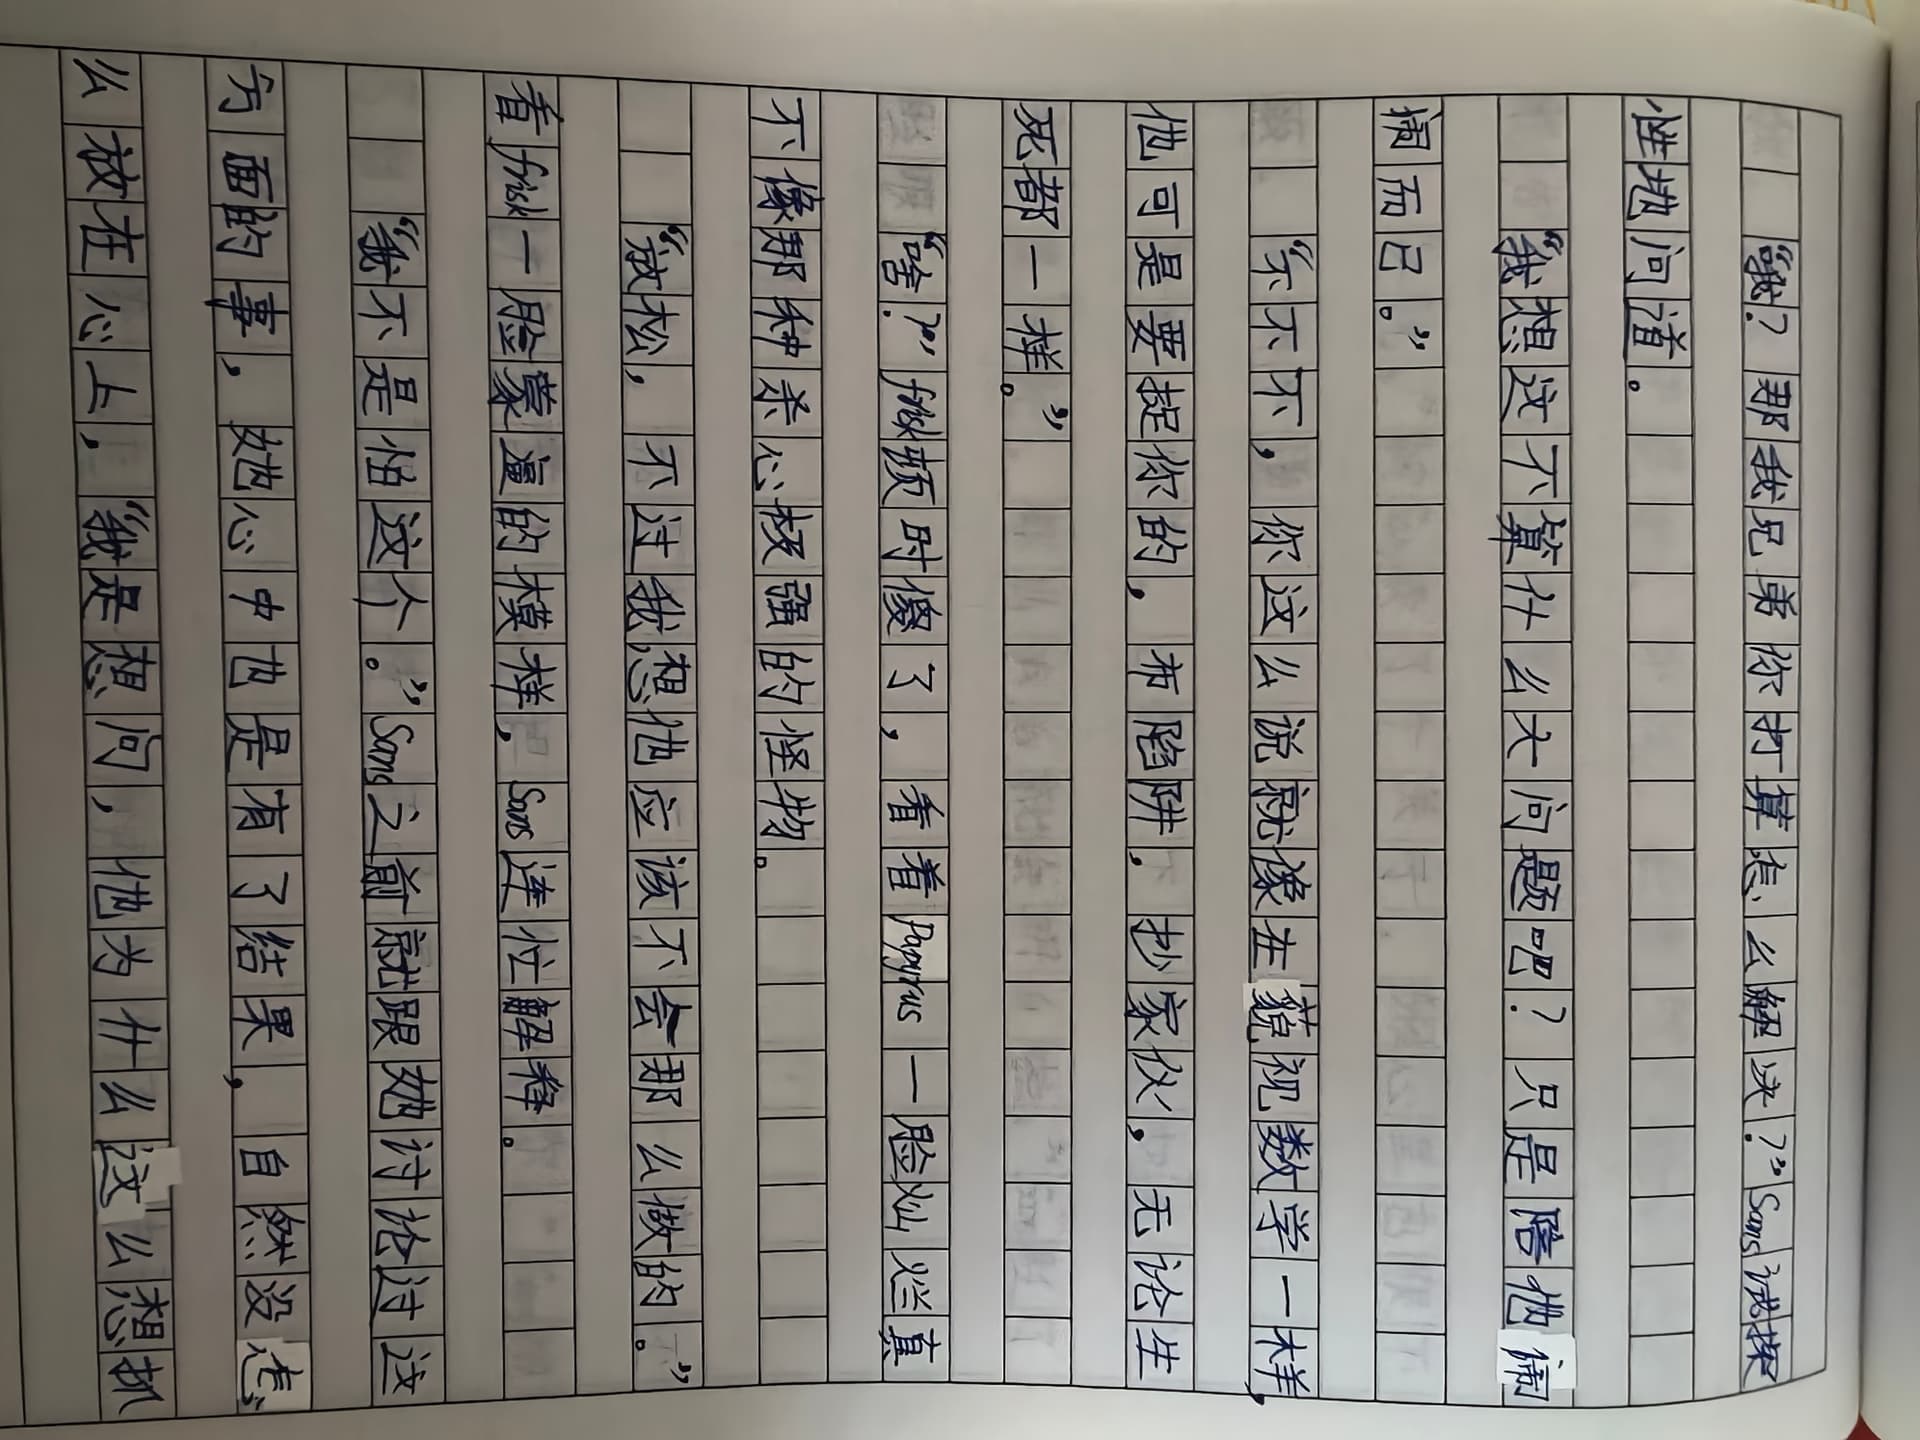 “哦？那我兄弟你打算怎么解决？”Sans试探
性地问道。
“我想这不算什么大问题吧？只是陪他闹
闹而已。”
“不不不，你这么说就像在藐视数学一样，
他可是要捉你的，布陷阱，抄家伙，无论生
死都一样。”
“啥？”frisk顿时傻了，看着Papyrus一脸灿烂真
不像那种杀心极强的怪物。
“放松，不过我想他应该不会那么做的。”
看frisk一脸蒙逼的模样，Sans连忙解释。
“我不是怕这个。”Sans之前就跟她讨论过这
方面的事，她心中也是有了结果，自然没怎
么放在心上，“我是想问，他为什么这么想抓